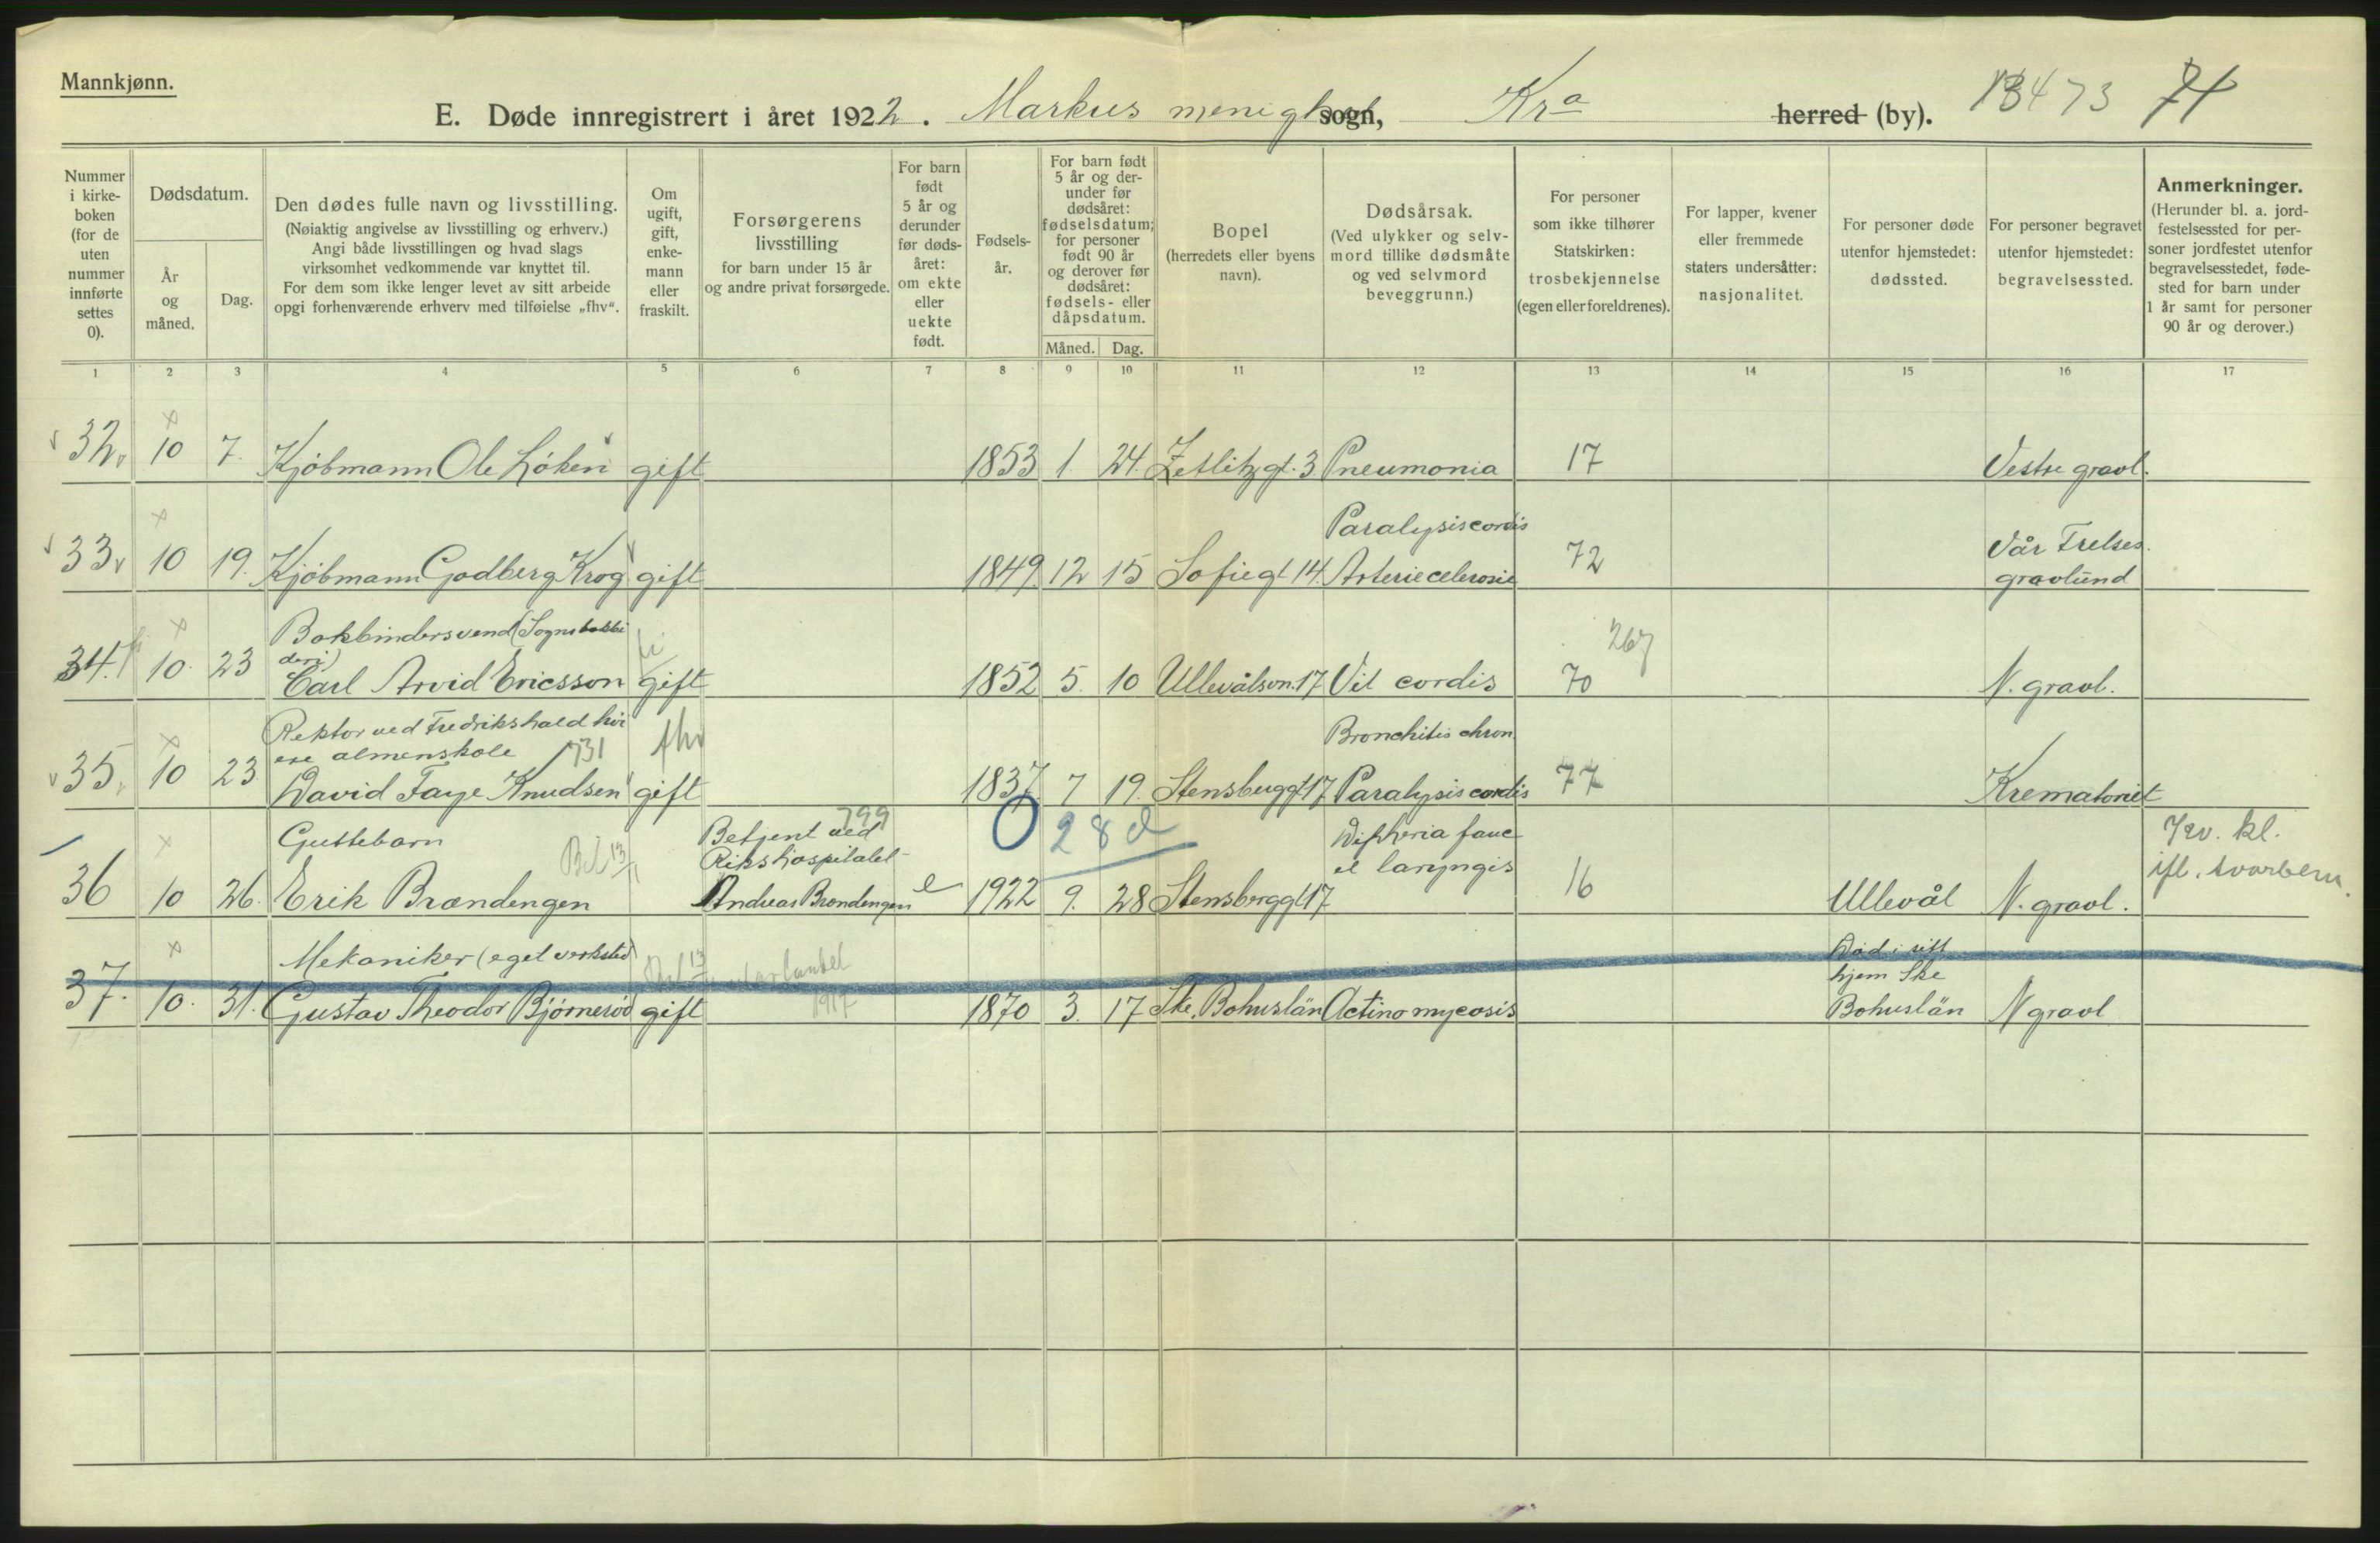 Mannkjønn.
E. Døde innregistrert i året 1922. Markus menighet sogn, Kra herred (by). 13473 71
Nummer i kirkeboken (for de uten nummer innførte settes 0).
Dødsdatum.
År og måned.
Dag.
Den dødes fulle navn og livsstilling.
(Nøiaktig angivelse av livsstilling og erhverv.)
Angi både livsstillingen og hvad slags
virksomhet vedkommende var knyttet til.
For dem som ikke lenger levet av sitt arbeide
opgi forhenværende erhverv med tilføielse „fhv“.
Om ugift, gift, enkemann eller fraskilt.
Forsørgerens livsstilling
for barn under 15 år
og andre privat forsørgede.
For barn født 5 år og derunder før dødsåret: om ekte eller uekte født.
Fødselsår.
For barn født 5 år og derunder før dødsåret: fødselsdatum; for personer født 90 år og derover før dødsåret: fødsels- eller dåpsdatum.
Måned. Dag.
Bopel
(herredets eller byens navn).
Dødsårsak.
(Ved ulykker og selvmord tillike dødsmåte og ved selvmord beveggrunn.)
For personer som ikke tilhører Statskirken: trosbekjennelse (egen eller foreldrenes).
For lapper, kvener eller fremmede staters undersåtter: nasjonalitet.
For personer døde utenfor hjemstedet: dødssted.
For personer begravet utenfor hjemstedet: begravelsessted.
Anmerkninger.
(Herunder bl. a. jordfestelsessted for personer jordfestet utenfor begravelsesstedet, fødested for barn under 1 år samt for personer 90 år og derover.)
1 2 3 4 5 6 7 8 9 10 11 12 13 14 15 16 17
32 10 7. Kjøbmann Ole Løken gift 1853 1. 24. Zetlitzgt. 3 Pneumonia 17 Vestre gravl.
Paralysis cordis
Vår Frelses
33 10 19. Kjøbmann Godberg Krog gift 1849 12 15 Sofiegt 14. Arteriecelerosie 72 gravlund
Bokbindersvend (Sogns bokbi
deri) 267
34. 10. 23 Carl Arvid Ericsson gift 1852 5. 10 Ullevålsvn. 17 Vit cordis 70 N. gravl.
Rektor ved Fredrikshald høi
ere almenskole 731 fhv Bronchitis chron.
35. 10 23 David Faye Knudsen gift 1837. 7 19. Stensberggt 17 Paralysis cordis 77 Krematoriet
Guttebarn Betjent ved 799 0 28 d Difhheria fauc
Rikshospitalet et laryngis
36 10 26. Erik Brændengen Andreas Brændengen e 1922 9. 28 Stensberggt 17 16 Ullevål N. gravl.
Kv. kl.
ifl.
Mekaniker (eget verksted) Død i sitt
hjem Ske
1917
37. 10. 31. Gustav Theodor Bjørnerød gift 1870 3. 17 Ske, Bohuslän Actinomycosis Bohuslän N gravl